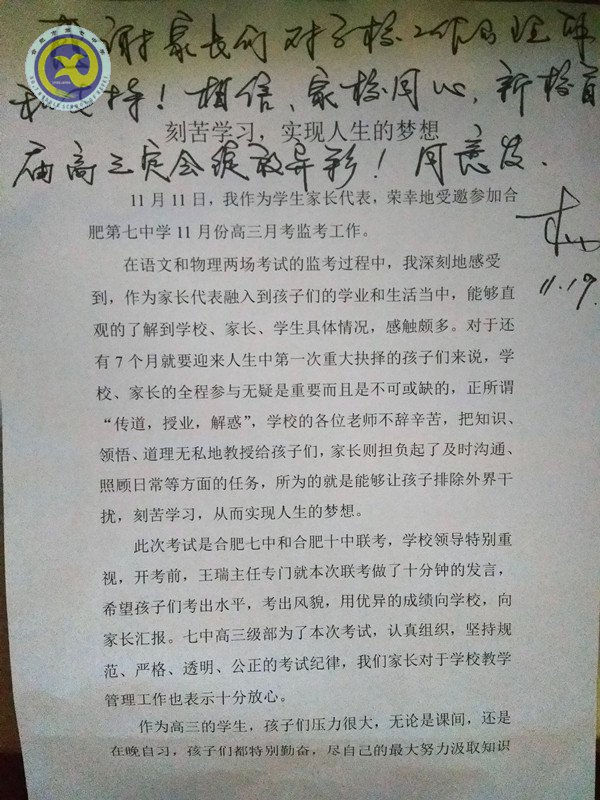 感谢家长们对学校工作的理解
和支持！相信，家校同心，新校首
届高三定会绽放异彩！同意发．
11.19.
刻苦学习，实现人生的梦想
11月11日，我作为学生家长代表，荣幸地受邀参加合
肥第七中学11月份高三月考监考工作。
在语文和物理两场考试的监考过程中，我深刻地感受
到，作为家长代表融入到孩子们的学业和生活当中，能够直
观的了解到学校、家长、学生具体情况，感触颇多。对于还
有7个月就要迎来人生中第一次重大抉择的孩子们来说，学
校、家长的全程参与无疑是重要而且是不可或缺的，正所谓
“传道，授业，解惑”，学校的各位老师不辞辛苦，把知识、
领悟、道理无私地教授给孩子们，家长则担负起了及时沟通、
照顾日常等方面的任务，所为的就是能够让孩子排除外界干
扰，刻苦学习，从而实现人生的梦想。
此次考试是合肥七中和合肥十中联考，学校领导特别重
视，开考前，王瑞主任专门就本次联考做了十分钟的发言，
希望孩子们考出水平，考出风貌，用优异的成绩向学校，向
家长汇报。七中高三级部为了本次考试，认真组织，坚持规
范、严格、透明、公正的考试纪律，我们家长对于学校教学
管理工作也表示十分放心。
作为高三的学生，孩子们压力很大，无论是课间，还是
在晚自习，孩子们都特别勤奋，尽自己的最大努力汲取知识